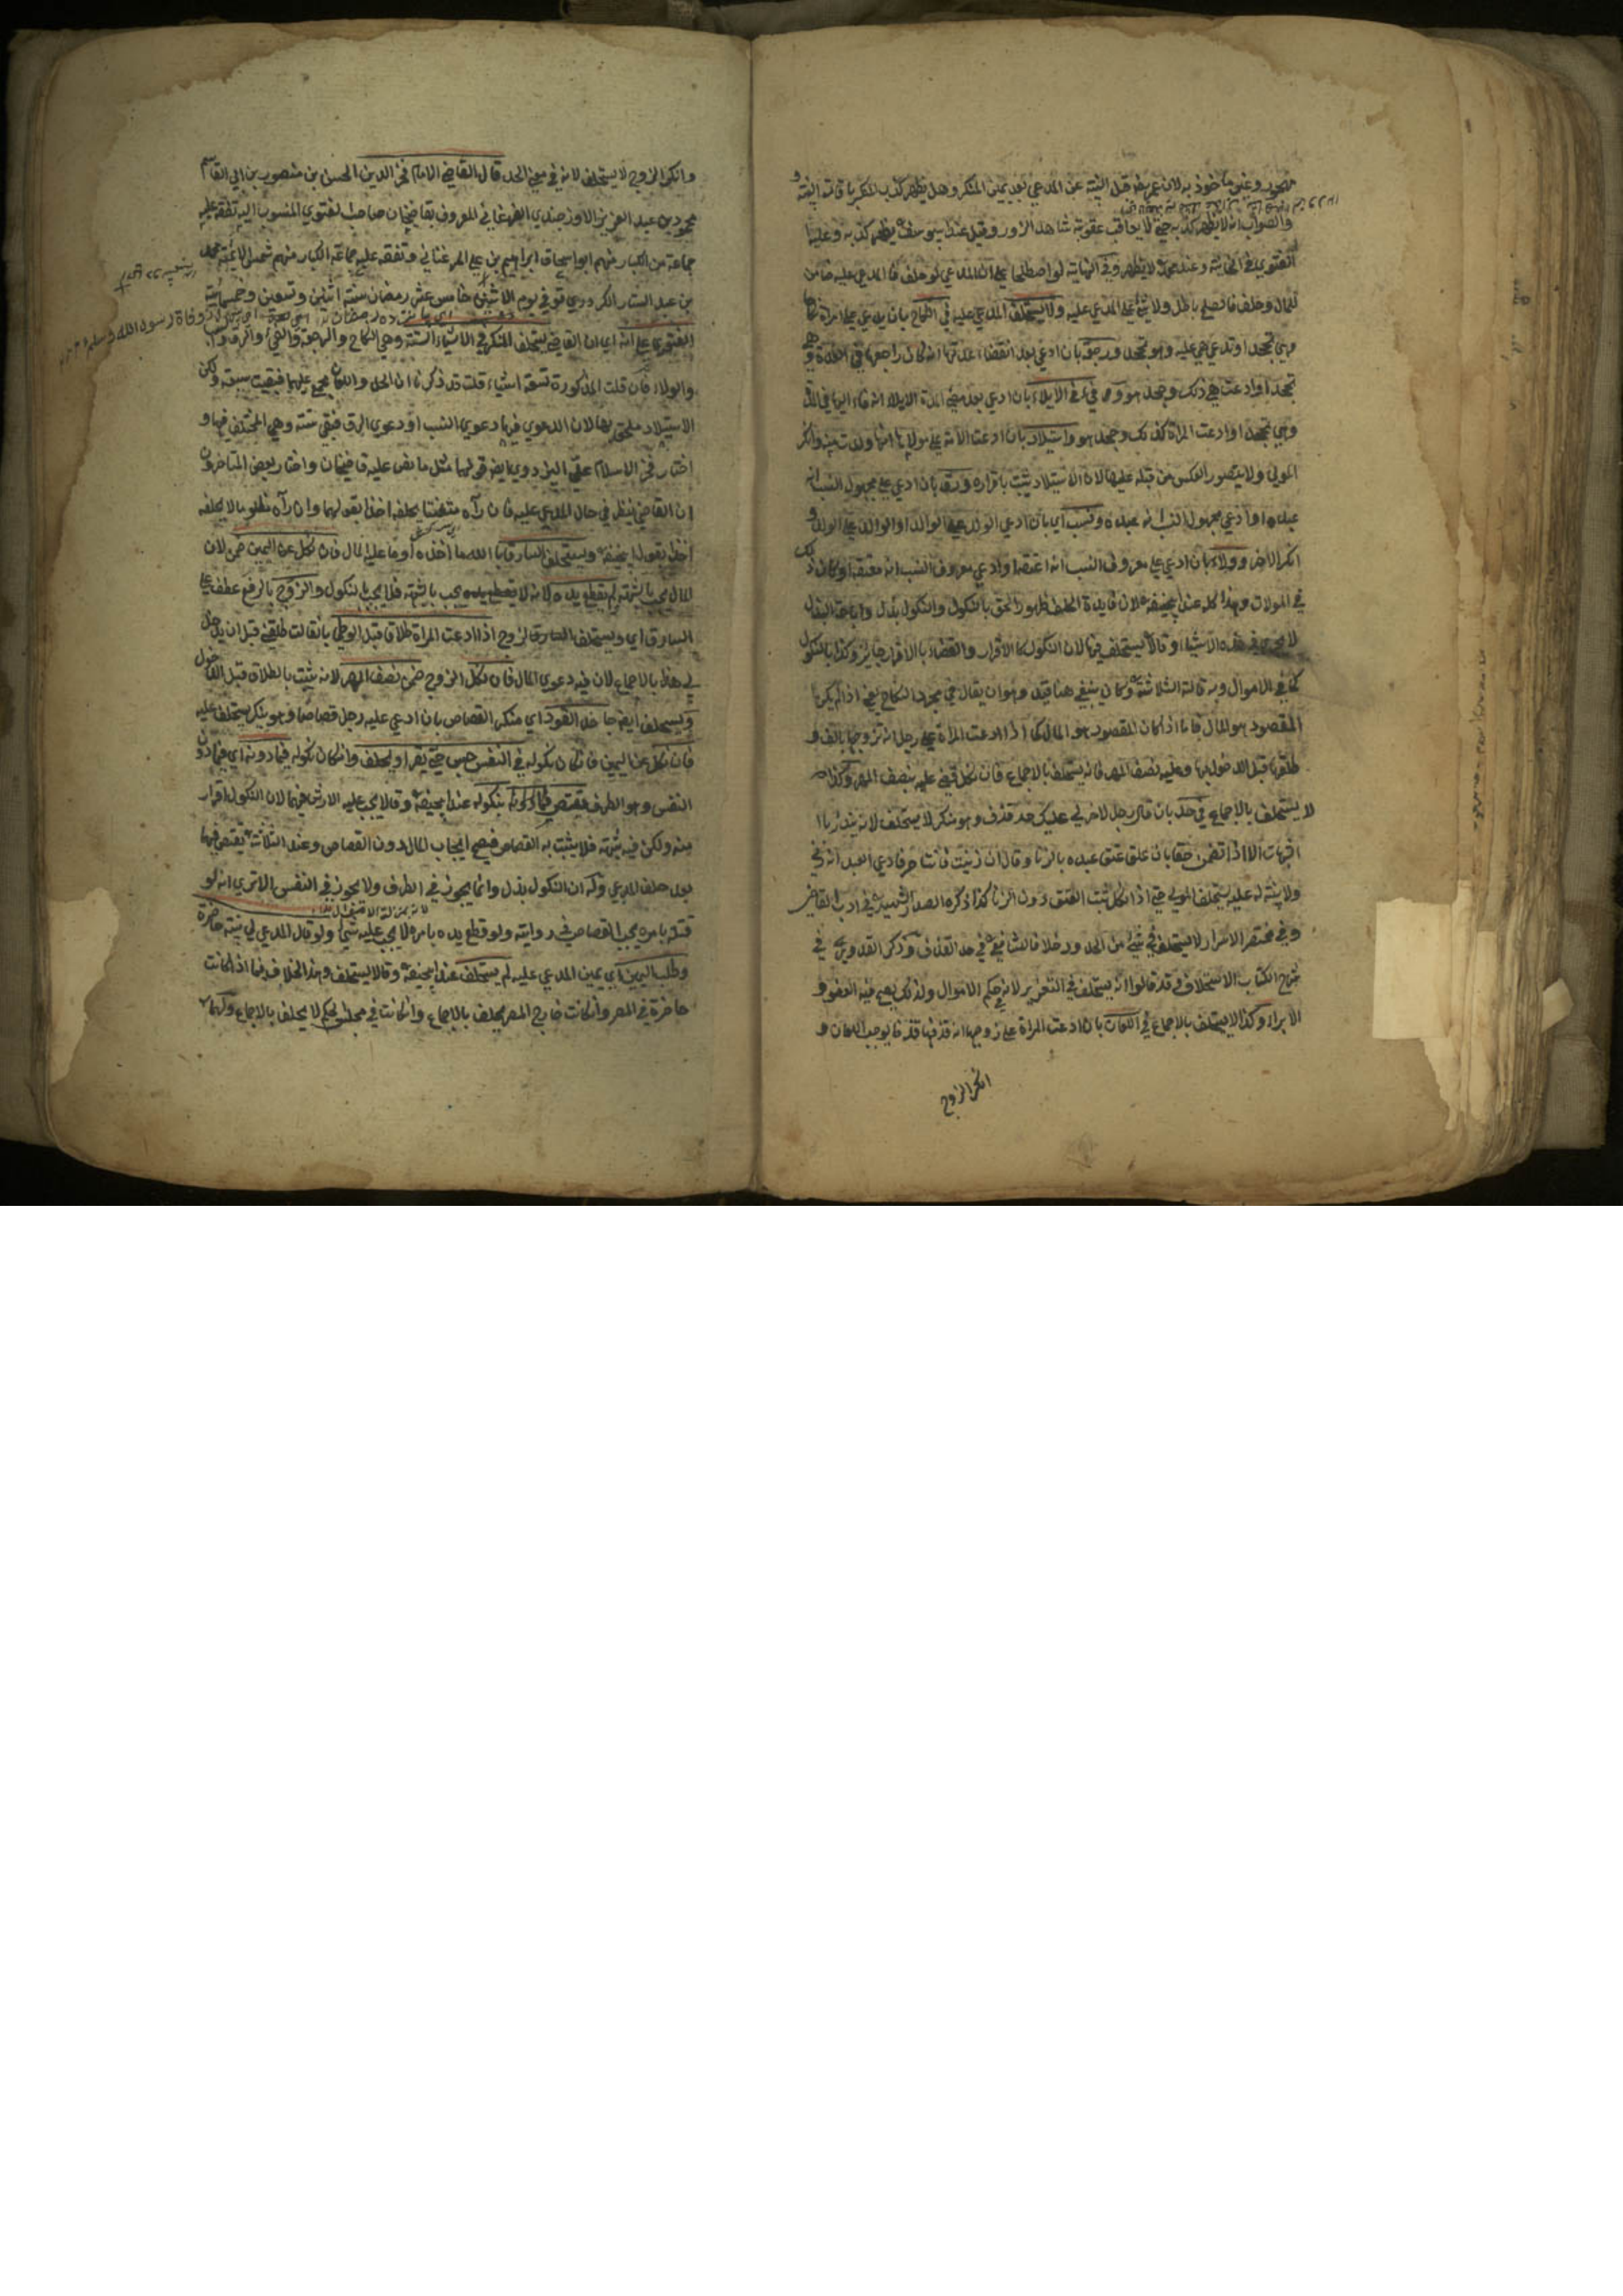 مهجور وغير ماخوذ به لان عمر رضه قبل البينة عن المدعي بعد يمين المنكر وهل يظهر كذب المنكر باقامة البينة و
والصواب انه لا يظهر كذبه حتى لا يعاقب عقوبة شاهد الزور وقيل عند ابيوسف يظهر كذبه وعليه
الفتوى في الخانية وعند محمد لا يظهر وفي النهاية لو اصطلحا على ان المدعي لو حلف فالمدعى عليه ضامن
للمال وحلف فالصلح باطل ولا شئ على المدعى عليه ولا يستحلف المدعى عليه في النكاح بان يدعي على امراة نكاحا
وهي تجحد او تدعي هي عليه وهو يجحد ورجعة بان ادعى بعد انقضاء عدتها انه كان راجعها في العدة وهي
تجحد او ادعت هي ذلك وجحد هو وفي فئ الايلاء بان ادعى بعد مضي المدة الايلاء انه فاء اليها في المدة
وهي تجحد او ادعت المراة كذلك وجحد هو واستيلاد بان ادعت الامة على مولاها انها ولدت منه وانكر
المولى ولا يتصور العكس من قبله عليها لان الاستيلاد يثبت باقراره ورق بان ادعى على مجهول النسب انه
عبده او ادعى مجهول النسب انه عبده ونسب اي بان ادعى الولد على الوالد او الوالد على الولد و
انكر الاخر وولاء بان ادعى على معروف النسب انه اعتقه او ادعى معروف النسب انه معتقه او كان ذلك
في الموالات وهذا كله عند ابيحنيفة لان فايدة الحلف ظهور الحق بالنكول والنكول بذل واباحة البذل
لا يجري في هذه الاشياء وقالا يستحلف فيها لان النكول كالاقرار والقضاء بالاقرار جايز وكذا بالنكول
كما في الاموال وبه قالت الثلاثة وكان ينبغي هنا قيد وهو ان يقال في مجرد النكاح يعني اذا لم يكن
المقصود هو المال فاما اذا كان المقصود هو المال كما اذا ادعت المراة على رجل انه تزوجها بالف و
طلقها قبل الدخول بها وعليه نصف المهر فانه يستحلف بالاجماع فان نكل قضي عليه بنصف المهر وكذا
لا يستحلف بالاجماع في حد بان قال رجل لاخر لي عليك حد قذف وهو منكر لا يستحلف لانه يندرئ با
لشبهات الا اذا تضمن حقا بان علق عتق عبده بالزنا وقال ان زنيت فانت حر فادعى العبد انه زنى
ولا بينة له عليه يستحلف المولى حتى اذا نكل ثبت العتق دون الزنا كذا ذكره الصدر الشهيد في ادب القاضي
وفي مختصر الاسرار لا يستحلف في شئ من الحدود خلافا للشافعي في حد القذف وذكر القدوري في
شرح الكتاب الاستحلاف قد قالوا انه يستحلف في التعزير لانه حكم الاموال ولذلك يصح فيه العفو و
الابراء وكذا لا يستحلف بالاجماع في اللعان بان ادعت المراة على زوجها انه قذفها قذفا يوجب اللعان و
انكر الزوج
وانكر الزوج لا يستحلف لانه في معنى الحد قال القاضي الامام فخر الدين الحسن بن منصور بن ابي القاسم
محمود بن عبد العزيز الاوزجندي الفرغاني المعروف بقاضيخان صاحب الفتوى المنسوب اليه تفقه عليه
جماعة من الكبار منهم ابو اسحاق ابراهيم بن علي المرغناني وتفقه عليه جماعة الكبار منهم شمس الايمة محمد
بن عبد الستار الكردري توفي يوم الاثنين خامس عشر رمضان سنة اثنين وتسعين وخمسمائة
الفتوى على انه اي ان القاضي يستحلف المنكر في الاشياء الستة وهي النكاح والرجعة والفئ والرق والنسب
والولاء فان قلت المذكورة تسعة اشياء قلت قد ذكرنا ان الحد واللعان مجمع عليهما فبقيت سبعة ولكن
الاستيلاد ملحق بها لان الدعوى فيها دعوى النسب او دعوى الرق فبقي ستة وهي المختلف فيها و
اختار فخر الاسلام علي البزدوي ايضا قولهما مثل ما نص عليه قاضيخان واختار بعض المتاخرون
ان القاضي ينظر في حال المدعى عليه فان رآه متعنتا يحلفه اخذا بقولهما وان رآه مظلوما لا يحلفه
اخذا بقول ابيحنيفة ويستحلف السارق با الله ما اخذه او ما عليه المال فان نكل عن اليمين ضمن لان
المال يجب بالشبهة لم تقطع يده لانه لا يقطع يده يجب بالشبهة فلا يجب بالنكول والزوج بالرفع عطف على
السارق اي ويستحلف الزوج اذا ادعت المراة طلاق قبل الوطئ بان قالت طلقني قبل ان يدخل
لي هذا بالاجماع لان فيه دعوى المال فان نكل الزوج ضمن نصف المهر لانه يثبت بالطلاق قبل الدخول
ويستحلف ايضا جاحد القود اي منكر القصاص بان ادعى عليه رجل قصاصا وهو ينكر يستحلف عليه
فان نكل عن اليمين فان كان نكوله في النفس حبس حتى يقر او يحلف وان كان نكوله فيما دونه اي فيما دون
النفس وهو الطرف يقتص بنكوله عند ابيحنيفة وقالا يجب عليه الارش فيهما لان النكول اقرار
منه ولكن فيه شبهة فلا يثبت به القصاص فيصح ايجاب المال دون القصاص وعند الثلاثة يقتص فيهما
بعد حلف المدعي وله ان النكول بذل وانما يجوز في الطرف ولا يجوز في النفس الا ترى انه لو
قتله بامره يجب القصاص في رواية ولو قطع يده بامره لا يجب عليه شئ ولو قال المدعي لي بينة حاضرة
وطلب اليمين اي يمين المدعى عليه لم يستحلف عند ابيحنيفة وقالا يستحلف وهذا الخلاف فيما اذا كانت
حاضرة في المصر وان كانت خارج المصر يحلف بالاجماع وان كانت في مجلس الحكم لا يحلف بالاجماع ولهما